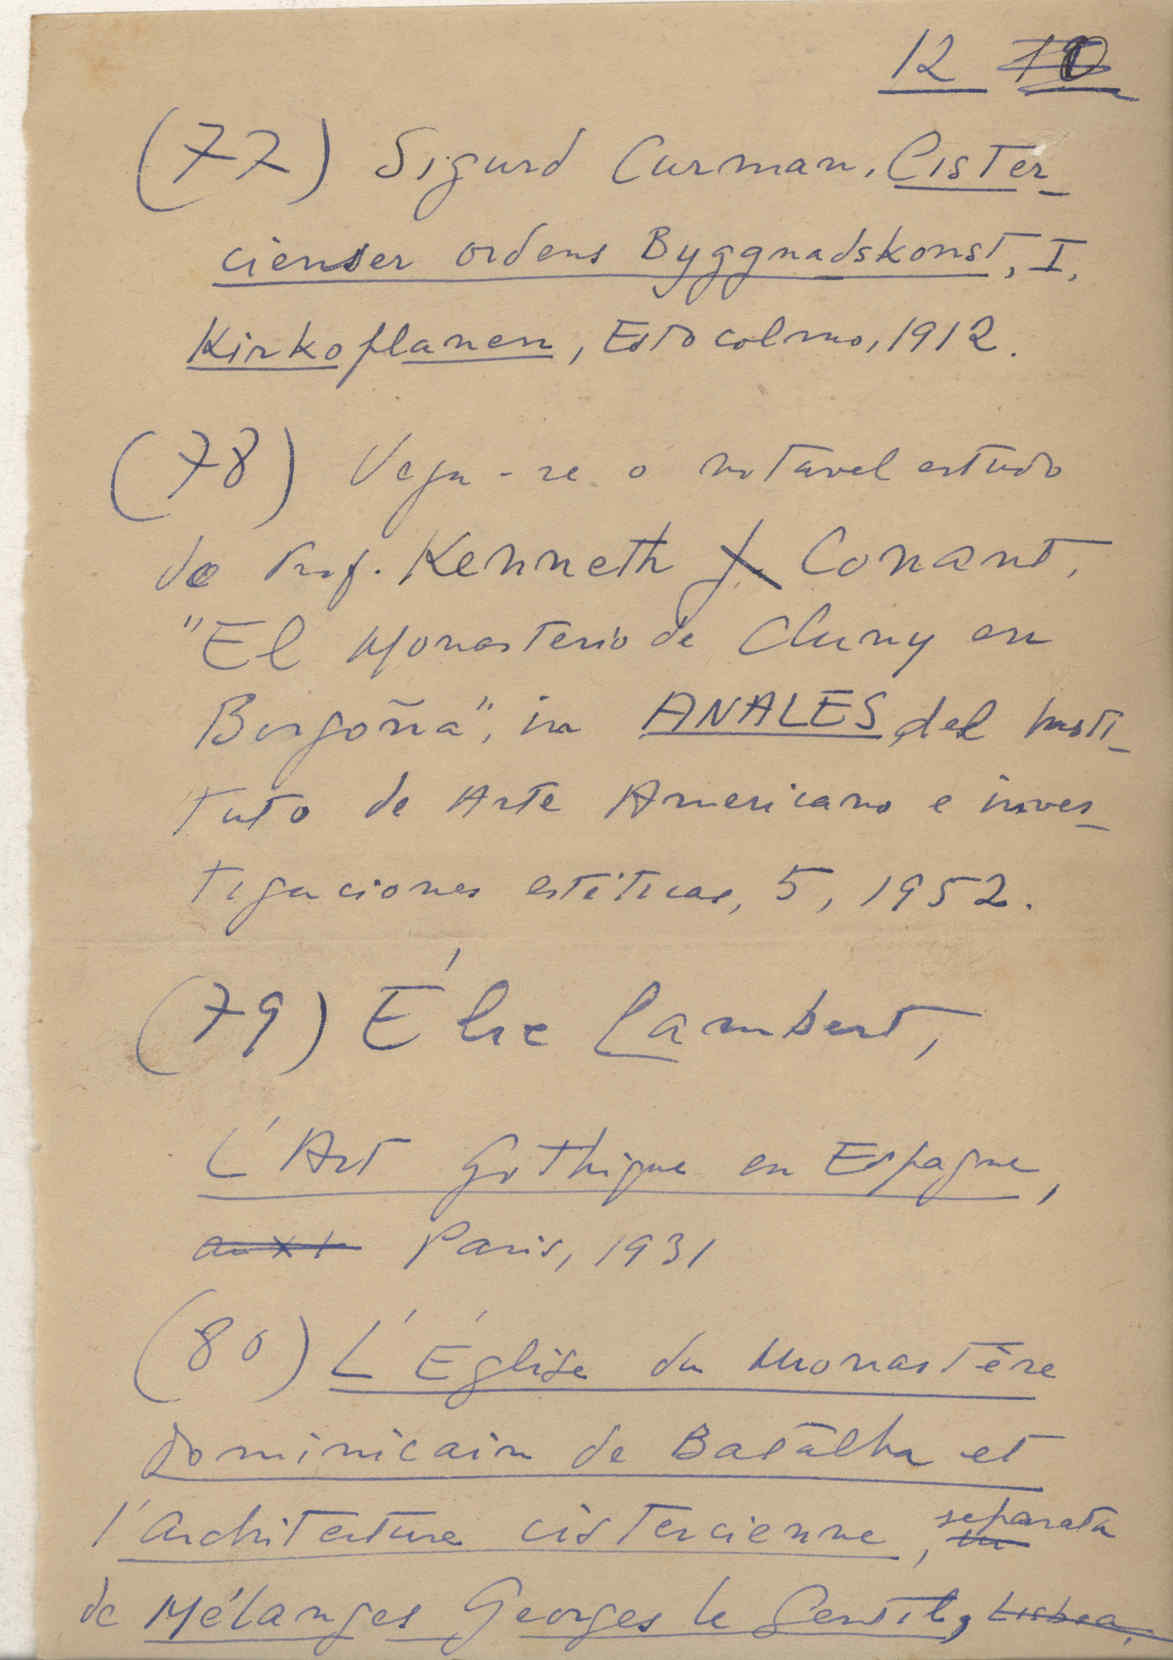 12 10
(77) Sigurd Curman, Cister-
cienser ordens Byggnadskonst, I,
Kirkoplanen, Estocolmo, 1912.
(78) Veja-se o notavel estudo
do Prof. Kenneth J. Conant,
"El Monasterio de Cluny en
Borgoña", in ANALES del Insti-
tuto de Arte Americano e inves-
tigaciones estéticas, 5, 1952.
(79) Élie Lambert,
L'Art Gothique en Espagne,
Paris, 1931
(80) L'Église du Monastère
Dominicain de Batalha et
l'Architecture cistercienne, separata
de Mélanges Georges le Gentil, Lisboa,